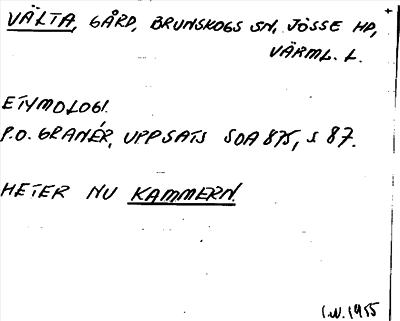 VÄLTA, GÅRD, BRUNSKOGS SN, JÖSSE HD,
VÄRML. L.
ETYMOLOGI.
P.O. GRANÉR, UPPSATS SOA 875, S 87.
HETER NU KAMMERN.
I.W. 1955